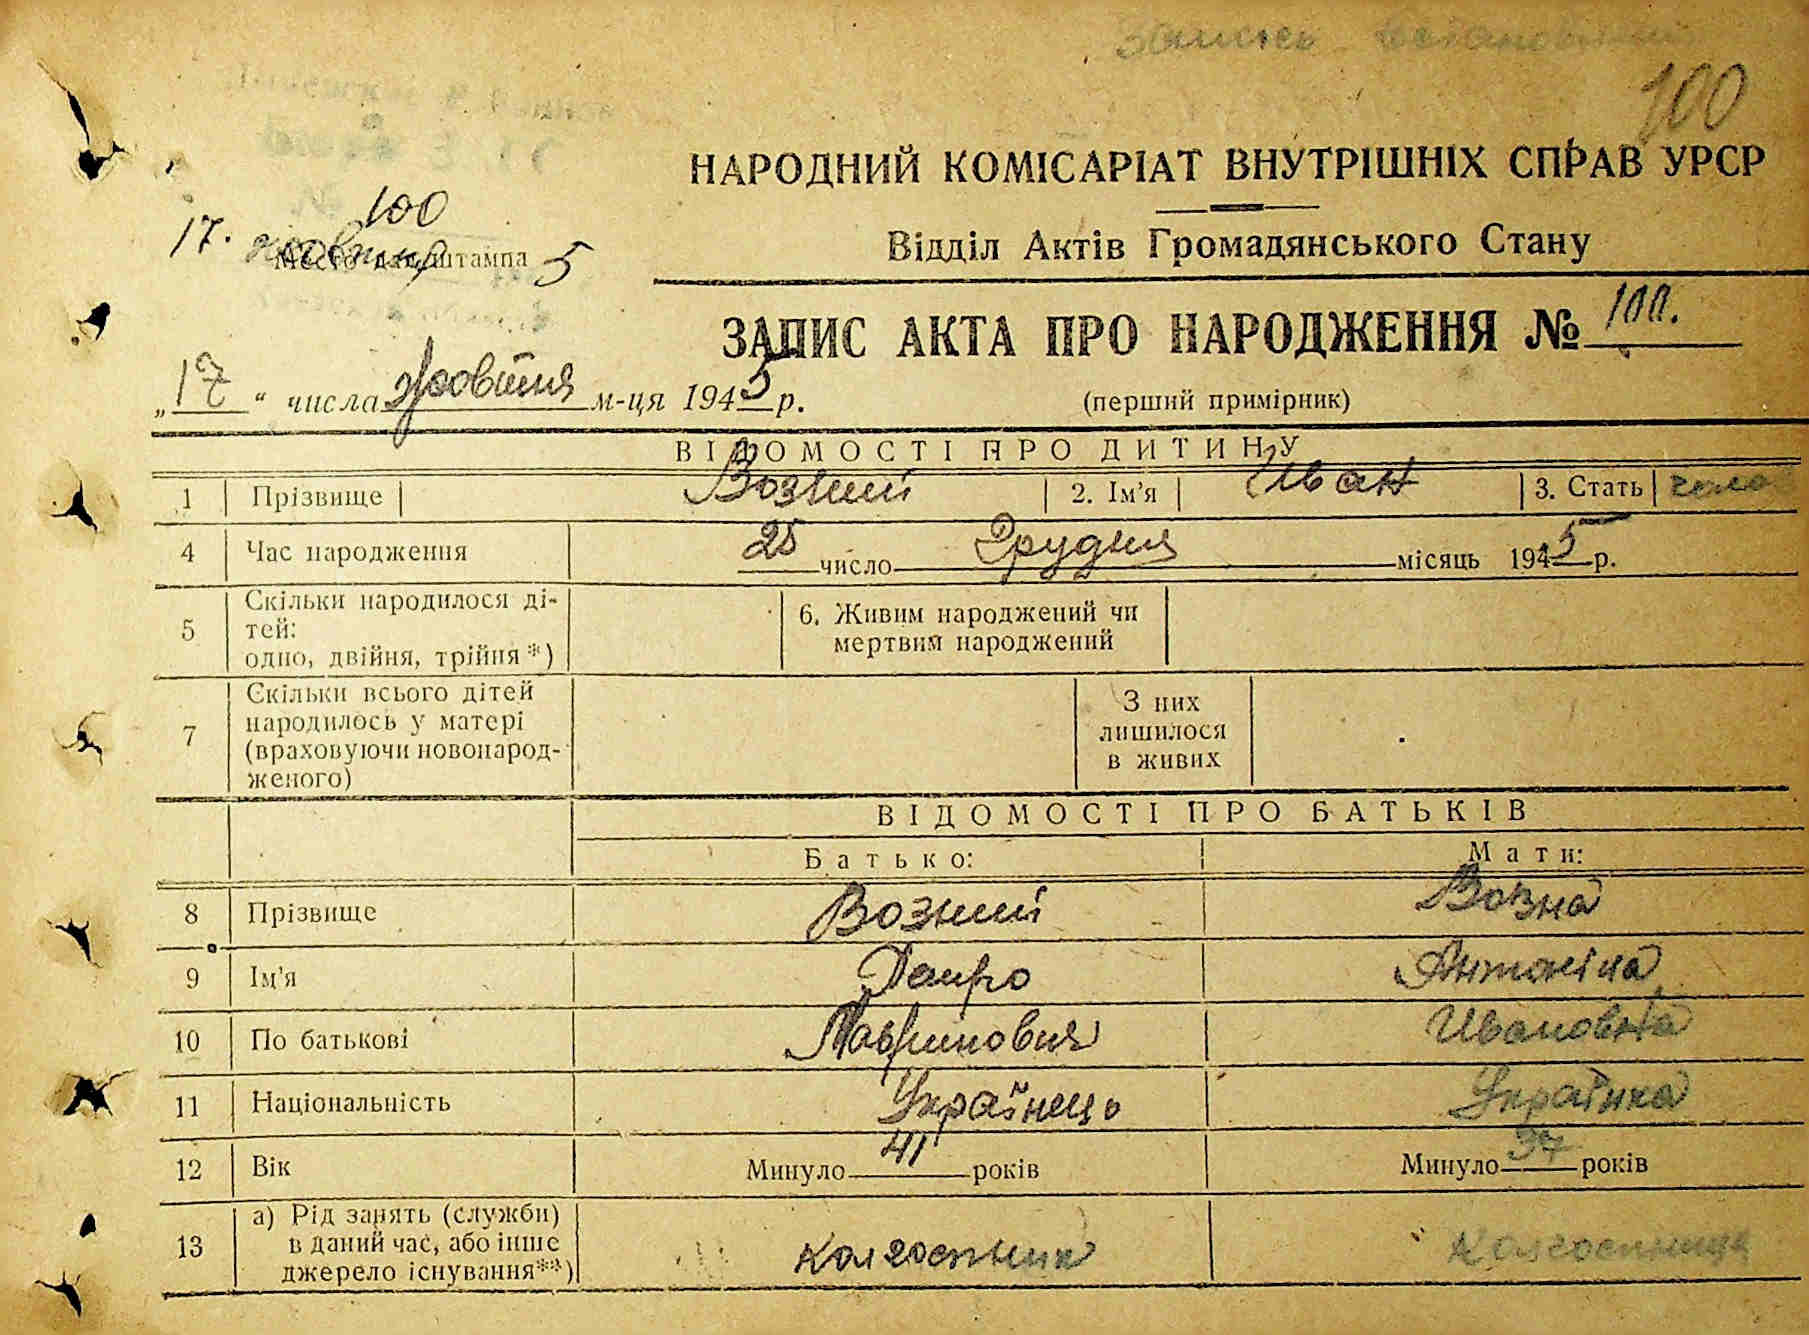 100
НАРОДНИЙ КОМІСАРІАТ ВНУТРІШНІХ СПРАВ УРСР
100
17. жовтня 5
Место для штампа
Відділ Актів Громадянського Стану
ЗАПИС АКТА ПРО НАРОДЖЕННЯ № 100.
„17“ числа Жовтня м-ця 1945 р.
(перший примірник)
ВІДОМОСТІ ПРО ДИТИНУ
1 Прізвище Возний 2. Ім'я Иван 3. Стать чоло
4 Час народження 25 число Грудня місяць 1945 р.
5 Скільки народилося ді-
тей:
одно, двійня, трійня*)
6. Живим народжений чи
мертвим народжений
7 Скільки всього дітей
народилось у матері
(враховуючи новонарод-
женого)
З них
лишилося
в живих
ВІДОМОСТІ ПРО БАТЬКІВ
Батько: Мати:
8 Прізвище Возний Возна
9 Ім'я Петро Антоніна
10 По батькові Лавринович Ивановна
11 Національність Українець Українка
12 Вік Минуло 41 років Минуло 37 років
13 а) Рід занять (служби)
в даний час, або інше
джерело існування**)
колгоспник Колгоспниця